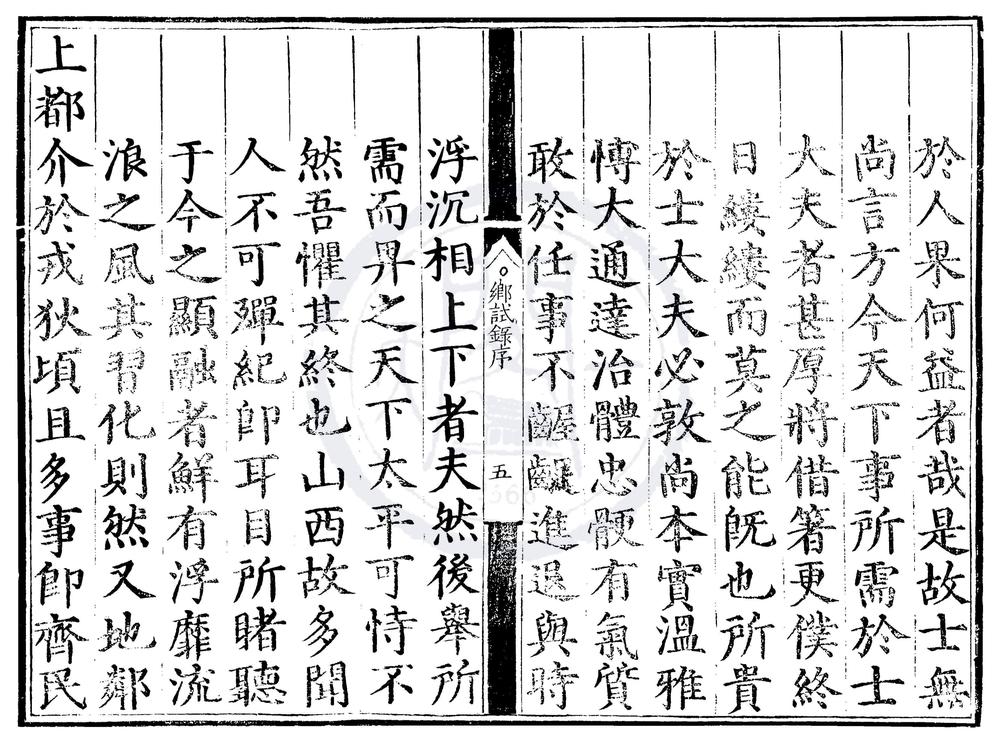 於人果何益者哉是故士無
尚言方今天下事所需於士
大夫者甚厚將借箸更僕終
日縷縷而莫之能旣也所貴
於士大夫必敦尚本實溫雅
博大通達治體忠骾有氣質
敢於任事不齷齪進退與時
鄉試錄序
五
浮沉相上下者夫然後舉所
需而畀之天下太平可恃不
然吾懼其終也山西故多聞
人不可殫紀卽耳目所睹聽
于今之顯融者鮮有浮靡流
浪之風其習化則然又地鄰
上都介於戎狄頃且多事卽齊民